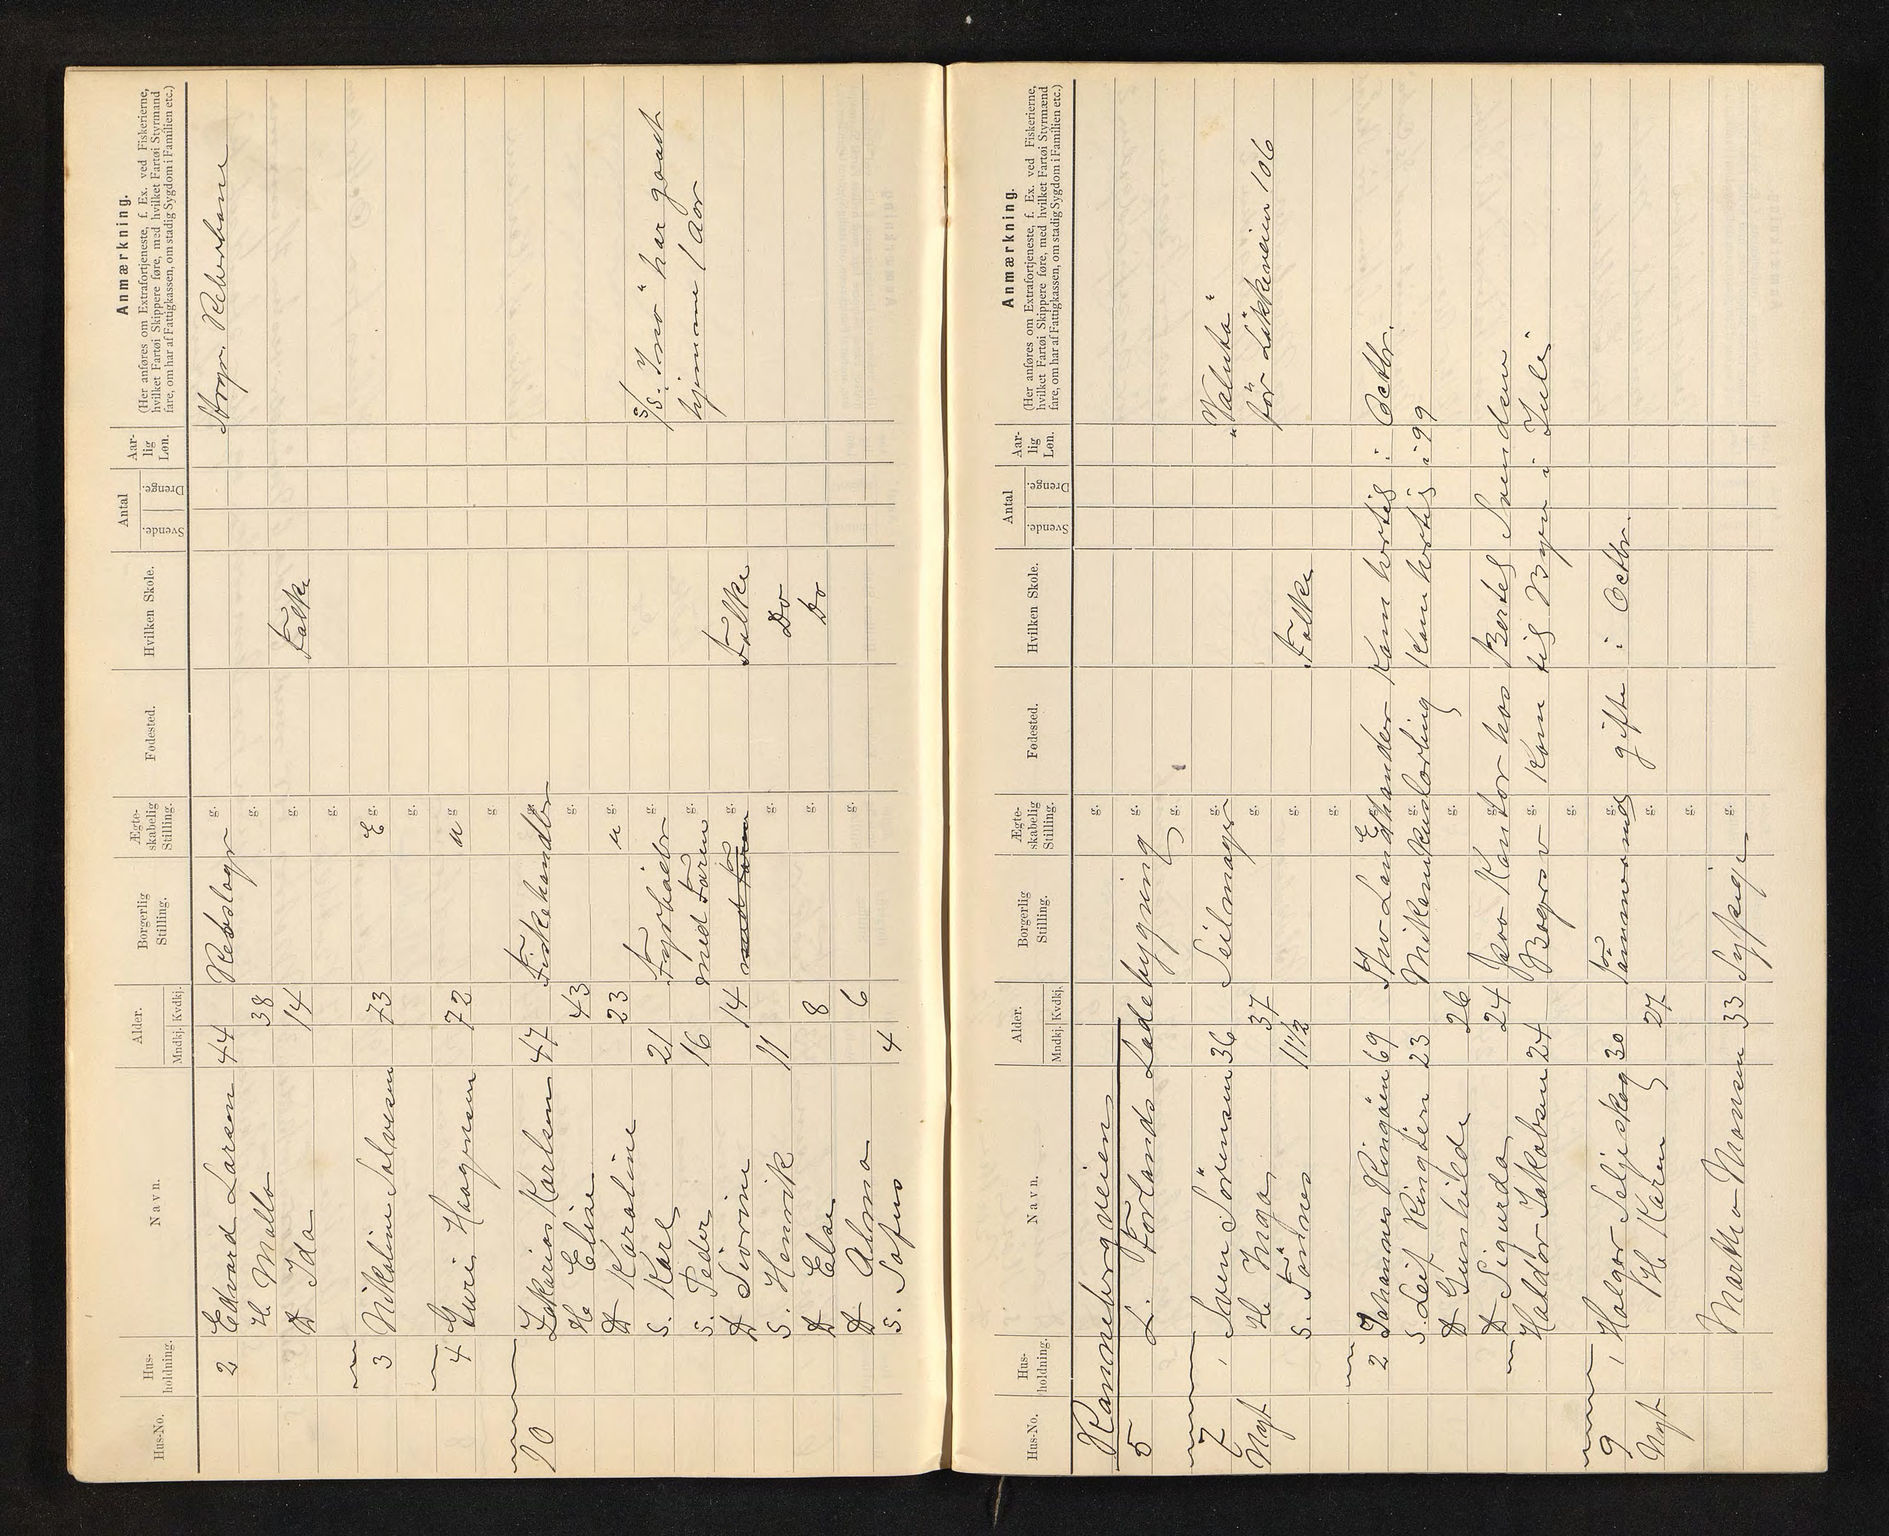 Hus-No. Hus-holdning. Navn. Alder. Mndkj. Kvdkj. Borgerlig Stilling. Ægte-skabelig Stilling. Fødested. Hvilken Skole. Antal Svende. Drenge. Aar-lig Løn. Anmærkning.
(Her anføres om Extrafortjeneste, f. Ex. ved Fiskerierne, hvilket Fartøi Skippere føre, med hvilket Fartøi Styrmand fare, om har af Fattigkassen, om stadig Sygdom i Familien etc.)
2 Edvard Larsen 44 Rebslagr g. Reberbane
H. Malla 38 g.
D Ida 14 g. Folke
g.
3 Nikoline Salvesen 73 E g.
g.
4 Guri Haagensen 72 u g.
g.
10 Zakarias Karlsen 47 Fiskehandlr g.
H. Elise 43 g.
D Karoline 23 u g.
S. Karl 21 Fyrböder g. S/S. "Ino" har gaaet
S. Peder 16 med Faren g. hjemme 1 Aar
D Sivrine 14 med Faren g. Folke
S. Henrik 11 g. Do
D Else 8 g. Do
D Alma 6 g.
S. Sofus 4
Hus-No. Hus-holdning. Navn. Alder. Mndkj. Kvdkj. Borgerlig Stilling. Ægte-skabelig Stilling. Fødested. Hvilken Skole. Antal Svende. Drenge. Aar-lig Løn. Anmærkning.
(Her anføres om Extrafortjeneste, f. Ex. ved Fiskerierne, hvilket Fartøi Skippere føre, med hvilket Fartøi Styrmænd fare, om har af Fattigkassen, om stadig Sygdom i Familien etc.)
Rannebergveien g.
5 L. Forlands Ladebygning g.
g.
7 1 Sven Sörensen 36 Seilmager g. „Valuta"
Nyt H. Inga 37 g. för Lökkeveien 106
S. Tönnes 11 1/2 g. Folke
g.
2 Johannes Ringöen 69 Landhander E g. Kom hertil i Octbr.
S. Leif Ringöen 23 g. Kom hertil i 99
D Gunhilde 26 g.
D Sigurda 24 paa Kontor hos Bertel Svendsen g.
Haldor Jakobsen 24 Bagersv g. Kom til Byen i Juli
g.
9 1 Holger Seljeskog 30 Tömmermd g. gifte i Octbr.
Nyt H. Karen 27 g.
g.
Martha Monsen 33 Sypige g.